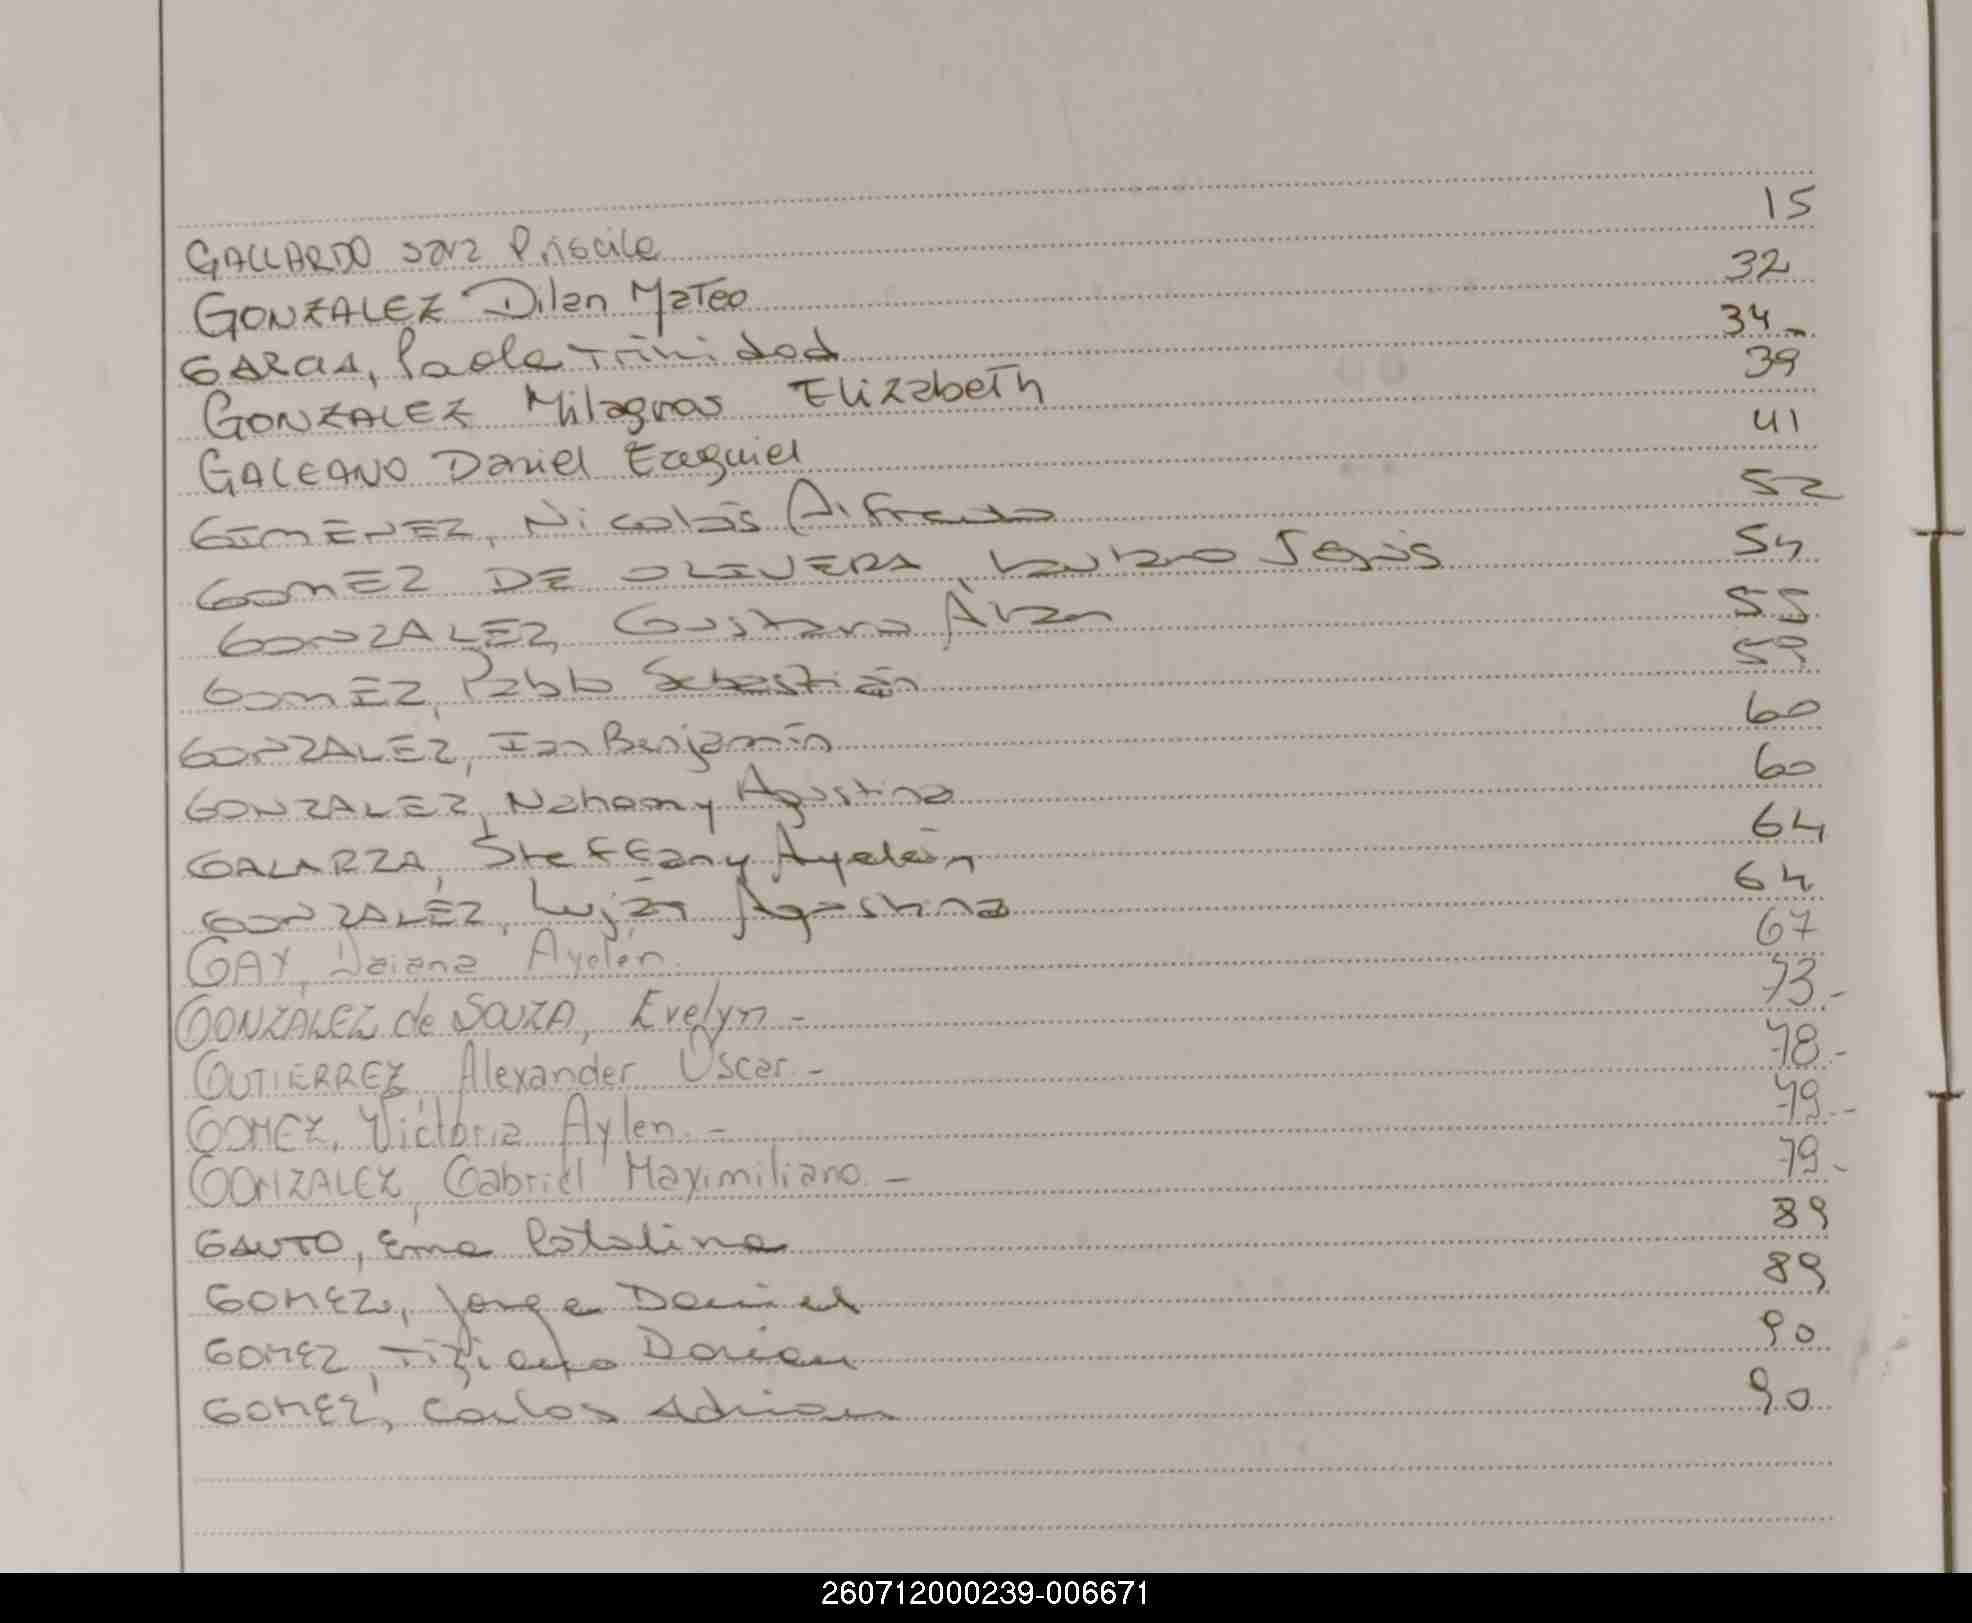 GALLARDO Sara Priscila 15
GONZALEZ Dilan Mateo 32
GARCIA, Paola Trinidad 34-
GONZALEZ Milagros Elizabeth 39
GALEANO Daniel Ezequiel 41
GIMENEZ, Nicolás Alfredo 52
GOMEZ DE OLIVERA, Lautaro Jesús 54
GONZALEZ, Gustavo Alan 55
GOMEZ, Pablo Sebastián 59
GONZALEZ, Ian Benjamín 60
GONZALEZ, Nahomy Agustina 60
GALARZA, Steffany Ayelén 64
GONZALEZ, Luján Agostina 64
GAY, Daiana Ayelén. 67
GONZALEZ de SOUZA, Evelyn - 73.-
GUTIERREZ, Alexander Oscar.- 78.-
GOMEZ, Victoria Aylen.- 79.-
GONZALEZ, Gabriel Maximiliano.- 79.-
GAUTO, Ema Catalina 89
GOMEZ, Jorge Daniel 89
GOMEZ, Tiziano Dorian 90
GOMEZ, Carlos Adrian 90
260712000239-006671